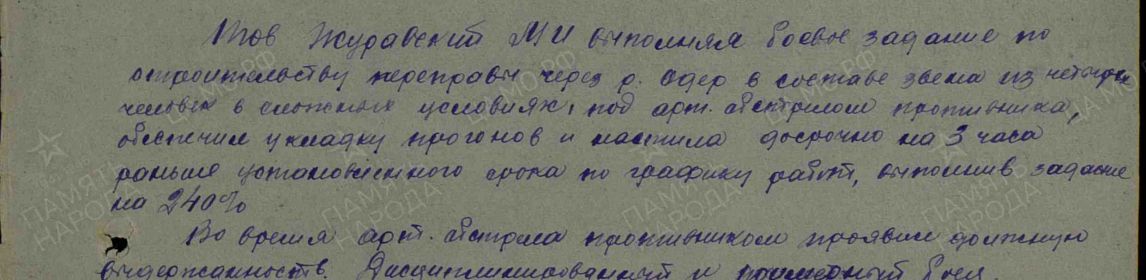 Тов Журавский М И выполняя боевое задание по
строительству переправы через р. Одер в составе звена из четырех
человек в сложных условиях, под арт. обстрелом противника,
обеспечил укладку прогонов и настила досрочно на 3 часа
раньше установленного срока по графику работ, выполнив задание
на 240%
Во время арт. обстрела противником проявил должную
выдержанность. Дисциплинированный и боец.
ПАМЯТЬ НАРОДА